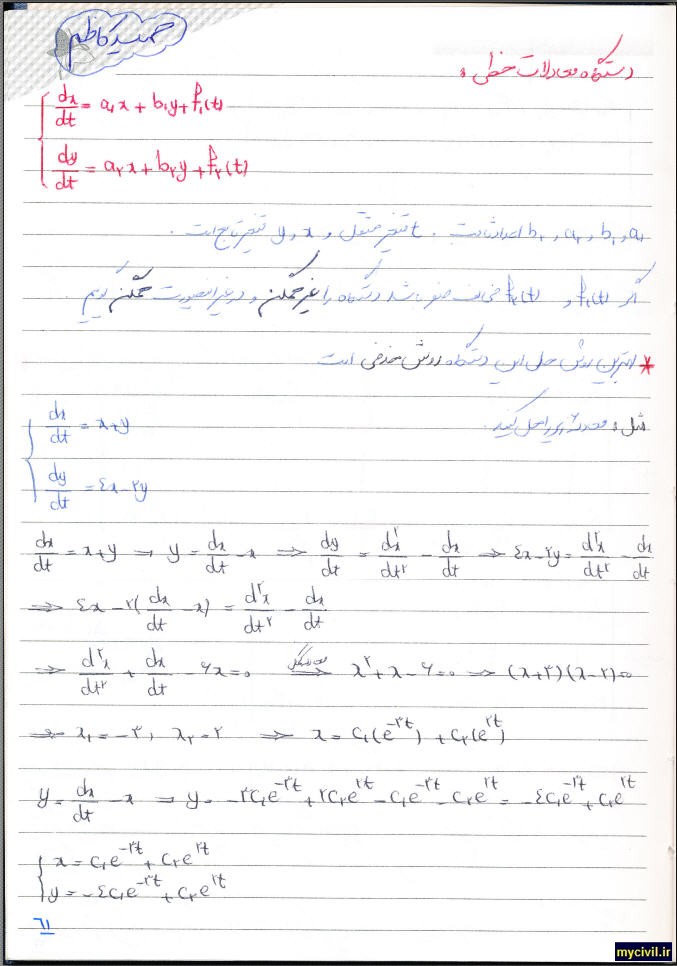 حمید کاظم
دستگاه معادلات خطی :
dx/dt = a₁x + b₁y + f₁(t)
dy/dt = a₂x + b₂y + f₂(t)
a₁ و b₁ و a₂ و b₂ اعداد ثابت . t متغیر مستقل و x و y متغیر تابع است .
اگر f₁(t) و f₂(t) مخالف صفر باشد دستگاه را غیر همگن و در غیر اینصورت همگن گویم .
* بهترین روش حل این دستگاه روش حذفی است
مثل : معادله زیر را حل کنید .
dx/dt = x+y
dy/dt = ٤x - ۲y
dx/dt = x+y ⇒ y = dx/dt - x ⇒ dy/dt = d²x/dt² - dx/dt ⇒ ٤x - ۲y = d²x/dt² - dx/dt
⇒ ٤x - ۲(dx/dt - x) = d²x/dt² - dx/dt
⇒ d²x/dt² + dx/dt - ۶x = ۰ ⇒ λ² + λ - ۶ = ۰ ⇒ (λ+۳)(λ-۲)=۰
⇒ λ₁ = -۳ , λ₂ = ۲ ⇒ x = c₁(e^-۳t) + c₂(e^۲t)
y = dx/dt - x ⇒ y = -۳c₁e^-۳t + ۲c₂e^۲t - c₁e^-۳t - c₂e^۲t = -٤c₁e^-۳t + c₂e^۲t
x = c₁e^-۳t + c₂e^۲t
y = -٤c₁e^-۳t + c₂e^۲t
۶۱
mycivil.ir